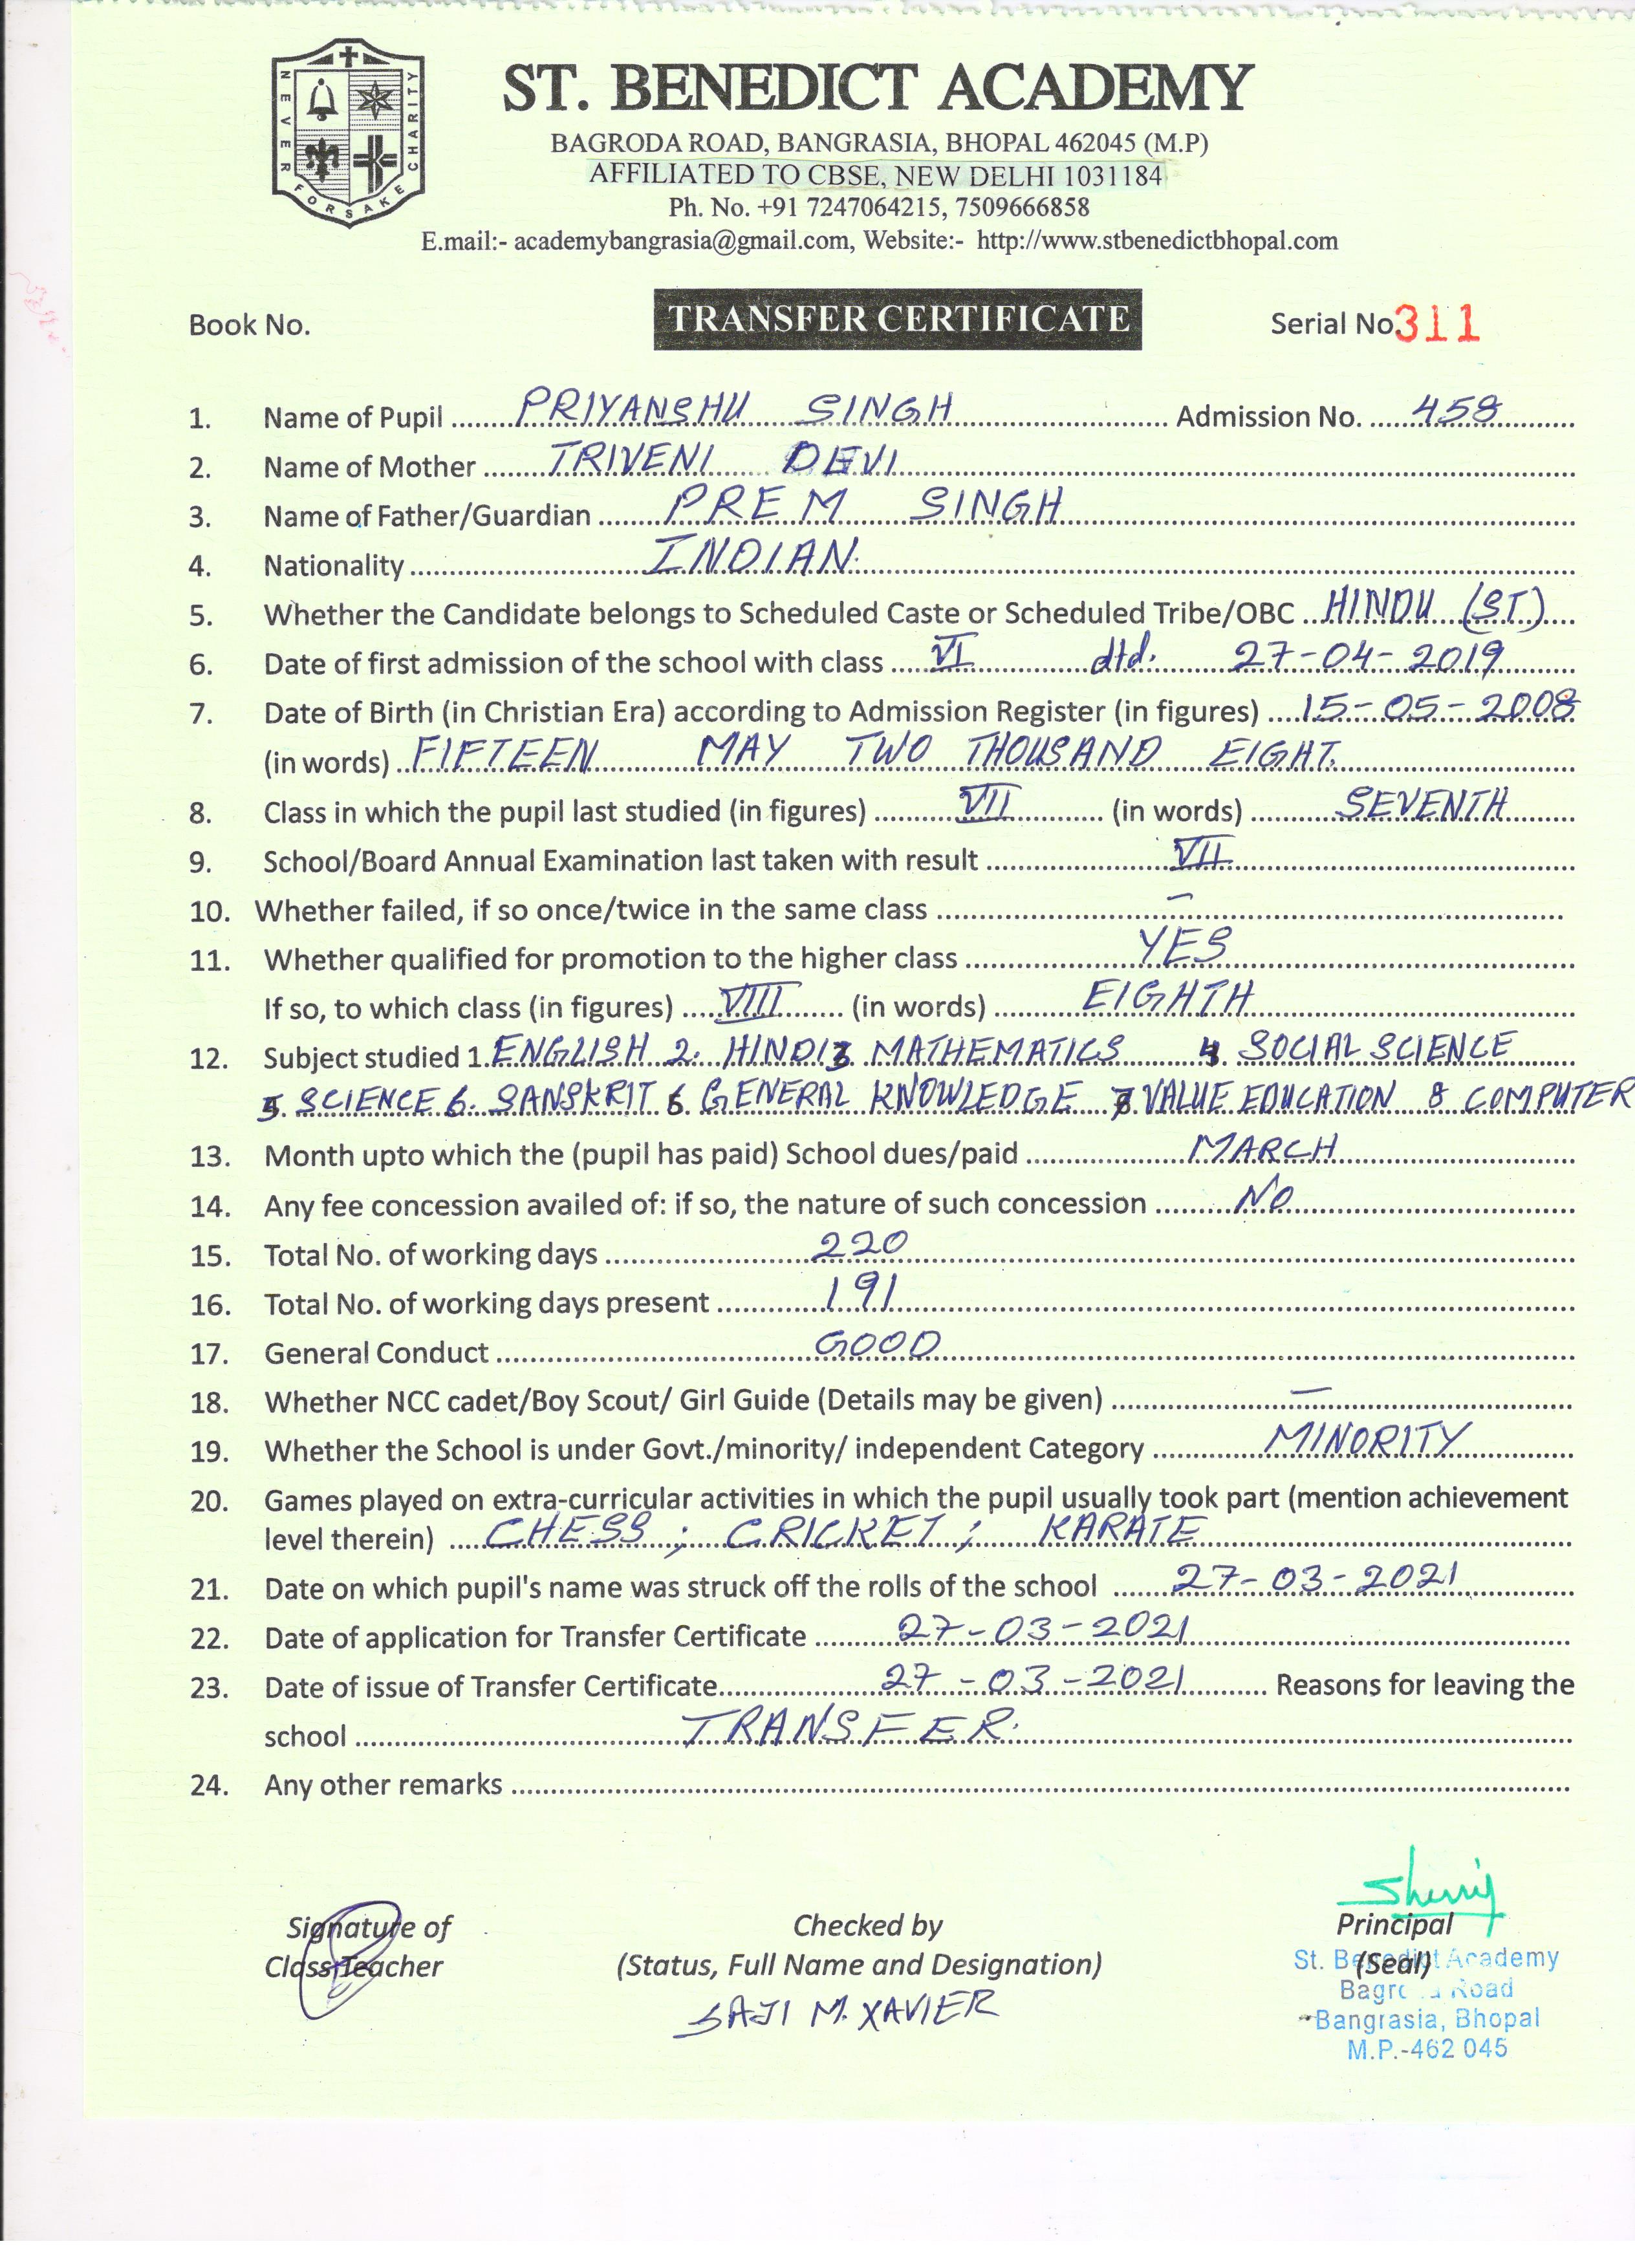 NEVER FORSAKE CHARITY
ST. BENEDICT ACADEMY
BAGRODA ROAD, BANGRASIA, BHOPAL 462045 (M.P)
AFFILIATED TO CBSE, NEW DELHI 1031184
Ph. No. +91 7247064215, 7509666858
E.mail:- academybangrasia@gmail.com, Website:- http://www.stbenedictbhopal.com
Book No. TRANSFER CERTIFICATE Serial No. 311
1. Name of Pupil PRIYANSHU SINGH Admission No. 458
2. Name of Mother TRIVENI DEVI
3. Name of Father/Guardian PREM SINGH
4. Nationality INDIAN.
5. Whether the Candidate belongs to Scheduled Caste or Scheduled Tribe/OBC HINDU (ST)
6. Date of first admission of the school with class VI dtd. 27-04-2019
7. Date of Birth (in Christian Era) according to Admission Register (in figures) 15-05-2008
(in words) FIFTEEN MAY TWO THOUSAND EIGHT.
8. Class in which the pupil last studied (in figures) VII (in words) SEVENTH
9. School/Board Annual Examination last taken with result VII
10. Whether failed, if so once/twice in the same class —
11. Whether qualified for promotion to the higher class YES
If so, to which class (in figures) VIII (in words) EIGHTH
12. Subject studied 1. ENGLISH 2. HINDI 3 MATHEMATICS 4. SOCIAL SCIENCE
5. SCIENCE 6. SANSKRIT 6. GENERAL KNOWLEDGE 7 VALUE EDUCATION 8 COMPUTER
13. Month upto which the (pupil has paid) School dues/paid MARCH
14. Any fee concession availed of: if so, the nature of such concession NO
15. Total No. of working days 220
16. Total No. of working days present 191
17. General Conduct GOOD
18. Whether NCC cadet/Boy Scout/ Girl Guide (Details may be given) —
19. Whether the School is under Govt./minority/ independent Category MINORITY
20. Games played on extra-curricular activities in which the pupil usually took part (mention achievement
level therein) CHESS ; CRICKET ; KARATE
21. Date on which pupil's name was struck off the rolls of the school 27-03-2021
22. Date of application for Transfer Certificate 27-03-2021
23. Date of issue of Transfer Certificate 27-03-2021 Reasons for leaving the
school TRANSFER.
24. Any other remarks
Signature of Checked by Principal
Class Teacher (Status, Full Name and Designation) (Seal)
SAJI M. XAVIER
St. Benedict Academy
Bagroda Road
Bangrasia, Bhopal
M.P.-462 045